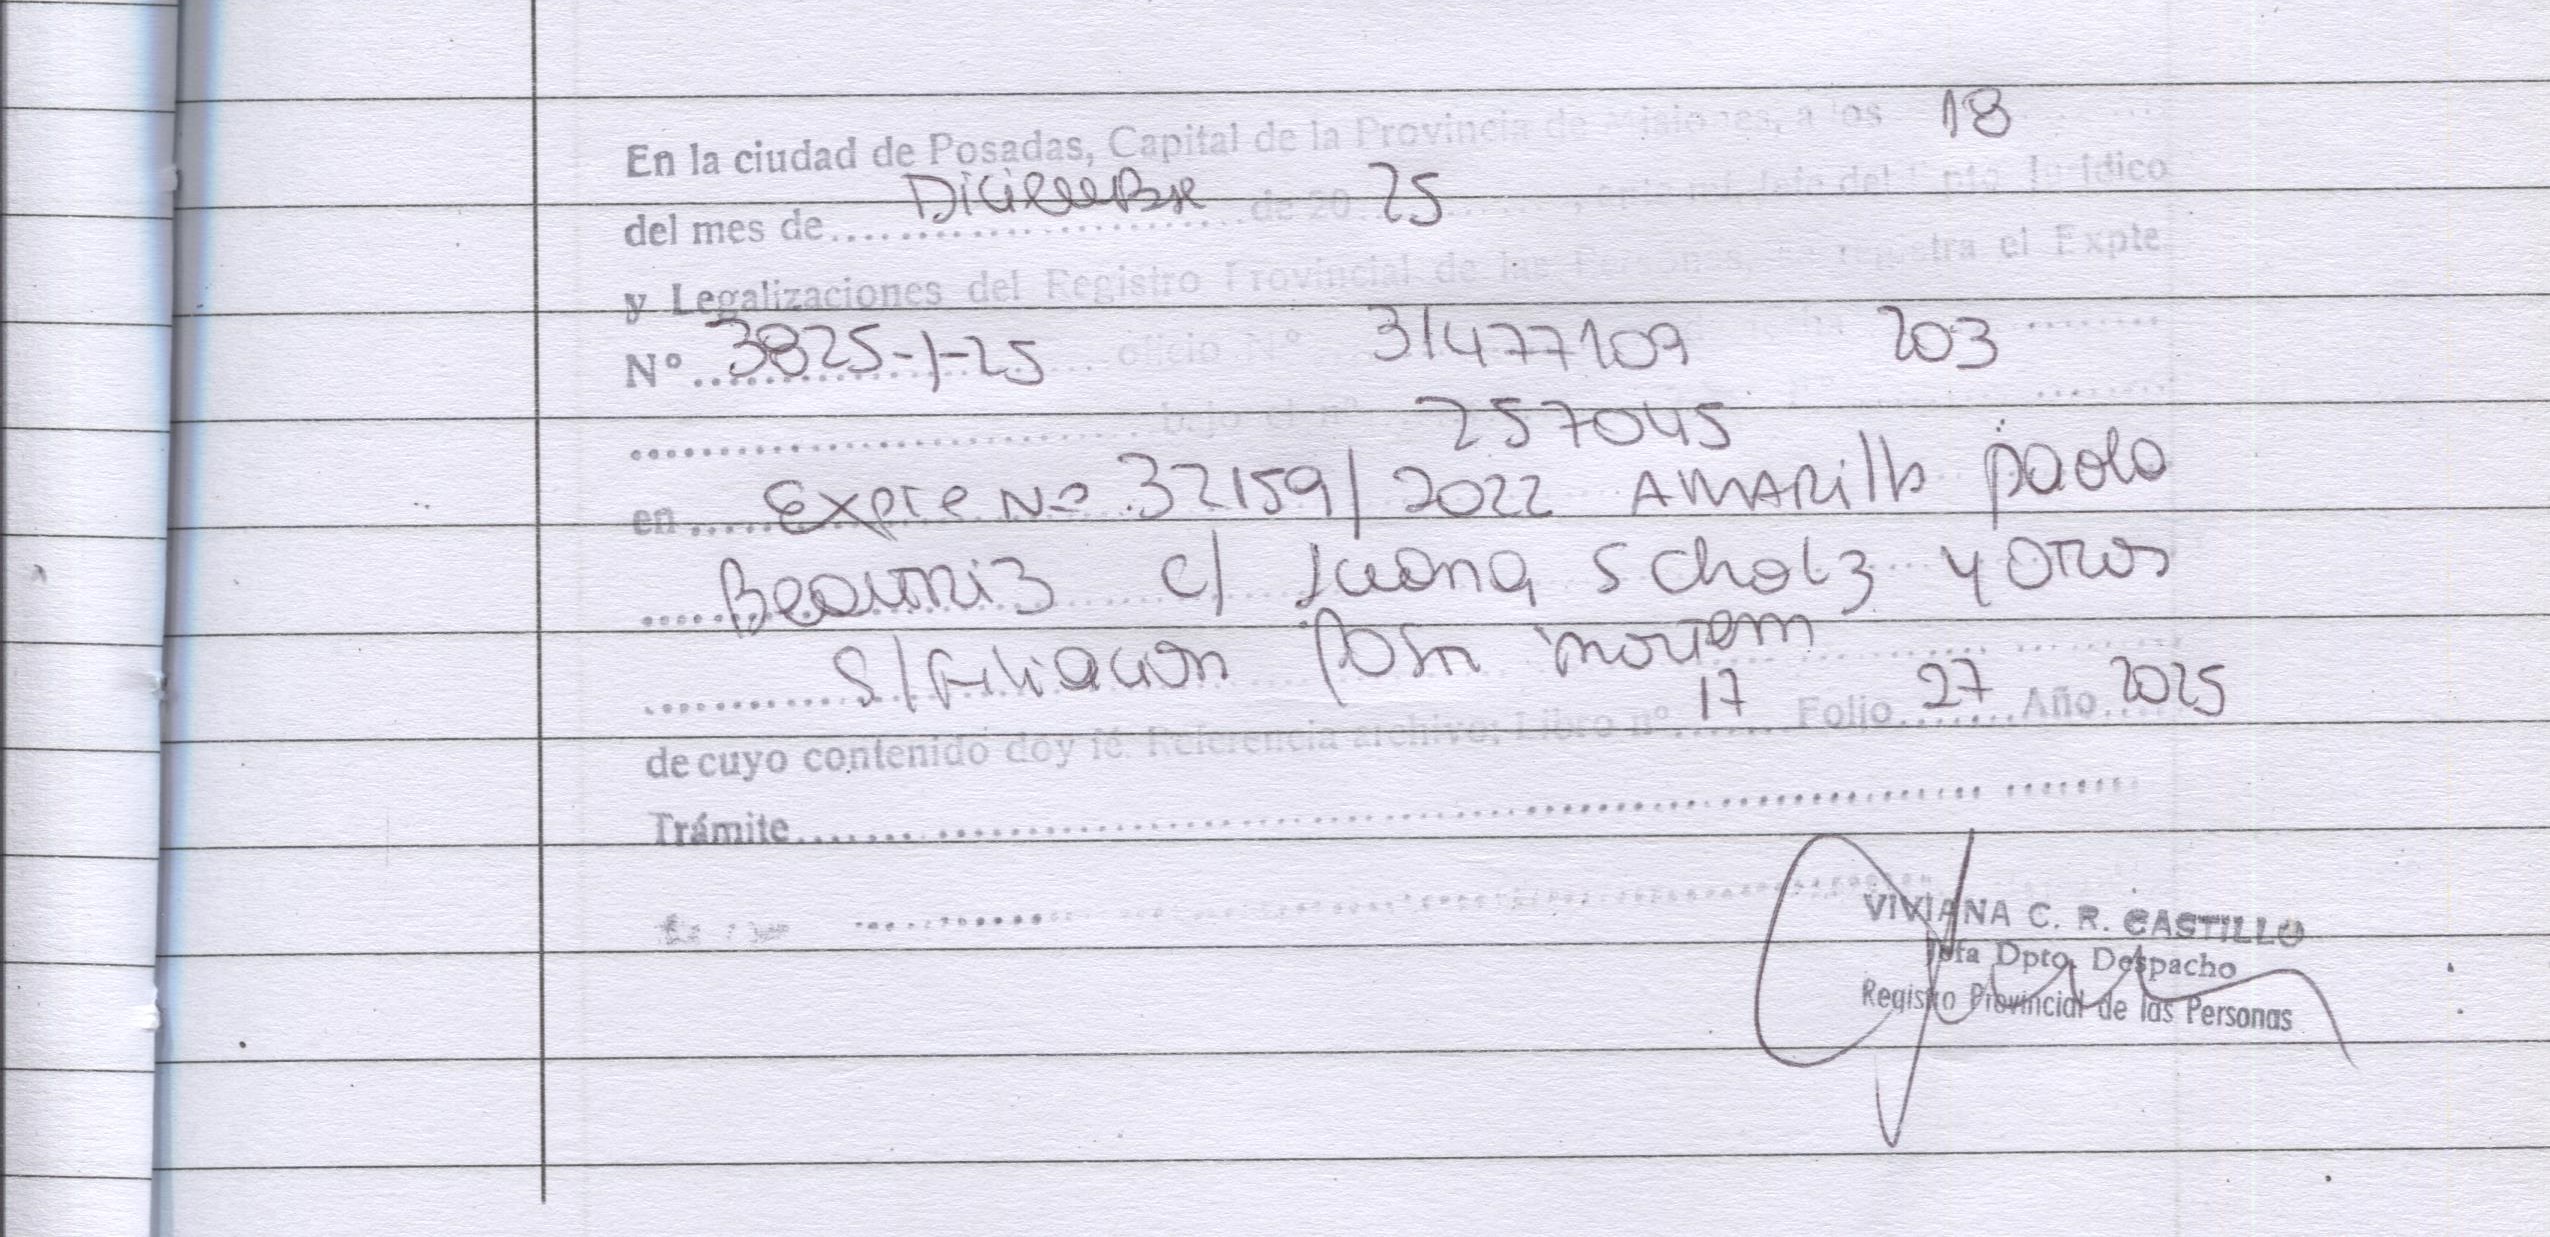 En la ciudad de Posadas, Capital de la Provincia de Misiones, a los 18
del mes de Diciembre de 20 25, ante mi, Jefe del Dpto Jurídico
y Legalizaciones del Registro Provincial de las Personas, se registra el Expte
Nº 3825-1-25 oficio Nº 31477109 203
bajo el nº 257045
en Expte Nº 32159/2022 AMARillo paola
Beatriz c/ Juana Scholz y otros
S/Filiacion post mortem
de cuyo contenido doy fé. Referencia archivo: Libro nº 17 Folio 27 Año 2025
Trámite
VIVIANA C. R. CASTILLO
Jefa Dpto. Despacho
Registro Provincial de las Personas